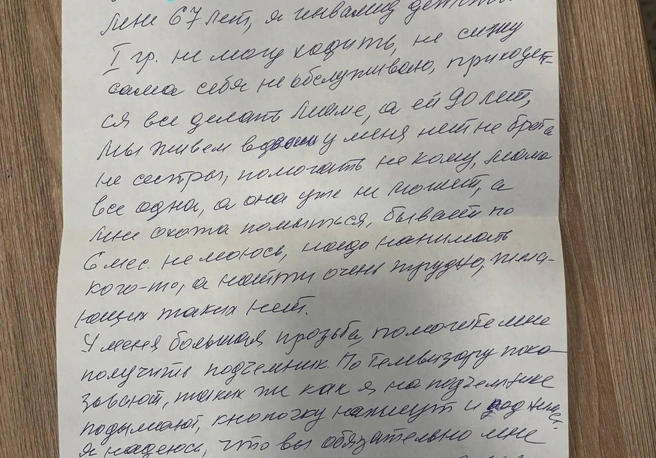 мне 67 лет, я инвалид детства
I гр. не могу ходить, не сижу
сама себя не обслуживаю, приходит-
ся все делать маме, а ей 90 лет,
мы живем вдвоем у меня нет не брата
не сестры, помогать не кому, мама
все одна, а она уже не может, а
мне охота помыться, бывает по
6 мес. не моюсь, надо нанимать
кого-то, а найти очень трудно, жела-
ющих таких нет.
У меня большая прозьба, помогите мне
получить подъемник. По телевизору пока-
зывают, таких же как я на подъемнике
подымают, кнопочку нажмут и
я надеюсь, что вы обязательно мне